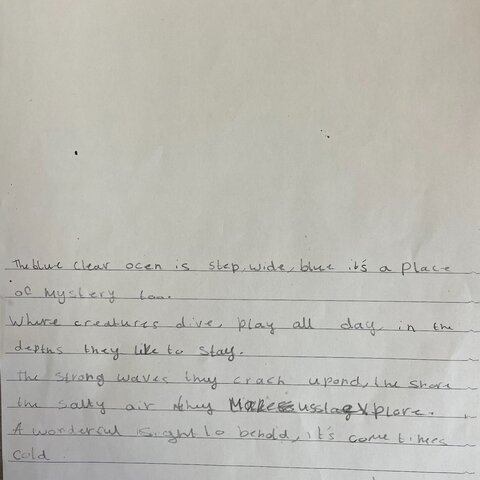 The blue clear ocen is step, wide, blue it's a place
of mystery too.
Where creatures dive, play all day in the
depths they like to stay.
The strong waves they crach upond, the shore
the salty air they Makes us explore.
A wonderful sight to behold, it's come times
cold.